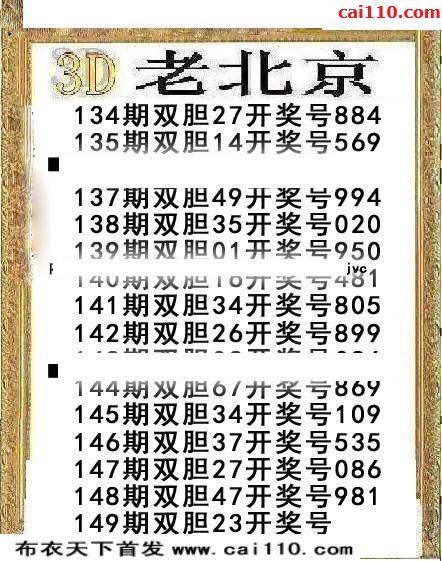 cai110.com
3D 老北京
134期双胆27开奖号884
135期双胆14开奖号569
137期双胆49开奖号994
138期双胆35开奖号020
139期双胆01开奖号950
jvc
140期双胆16开奖号481
141期双胆34开奖号805
142期双胆26开奖号899
144期双胆67开奖号869
145期双胆34开奖号109
146期双胆37开奖号535
147期双胆27开奖号086
148期双胆47开奖号981
149期双胆23开奖号
布衣天下首发 www.cai110.com